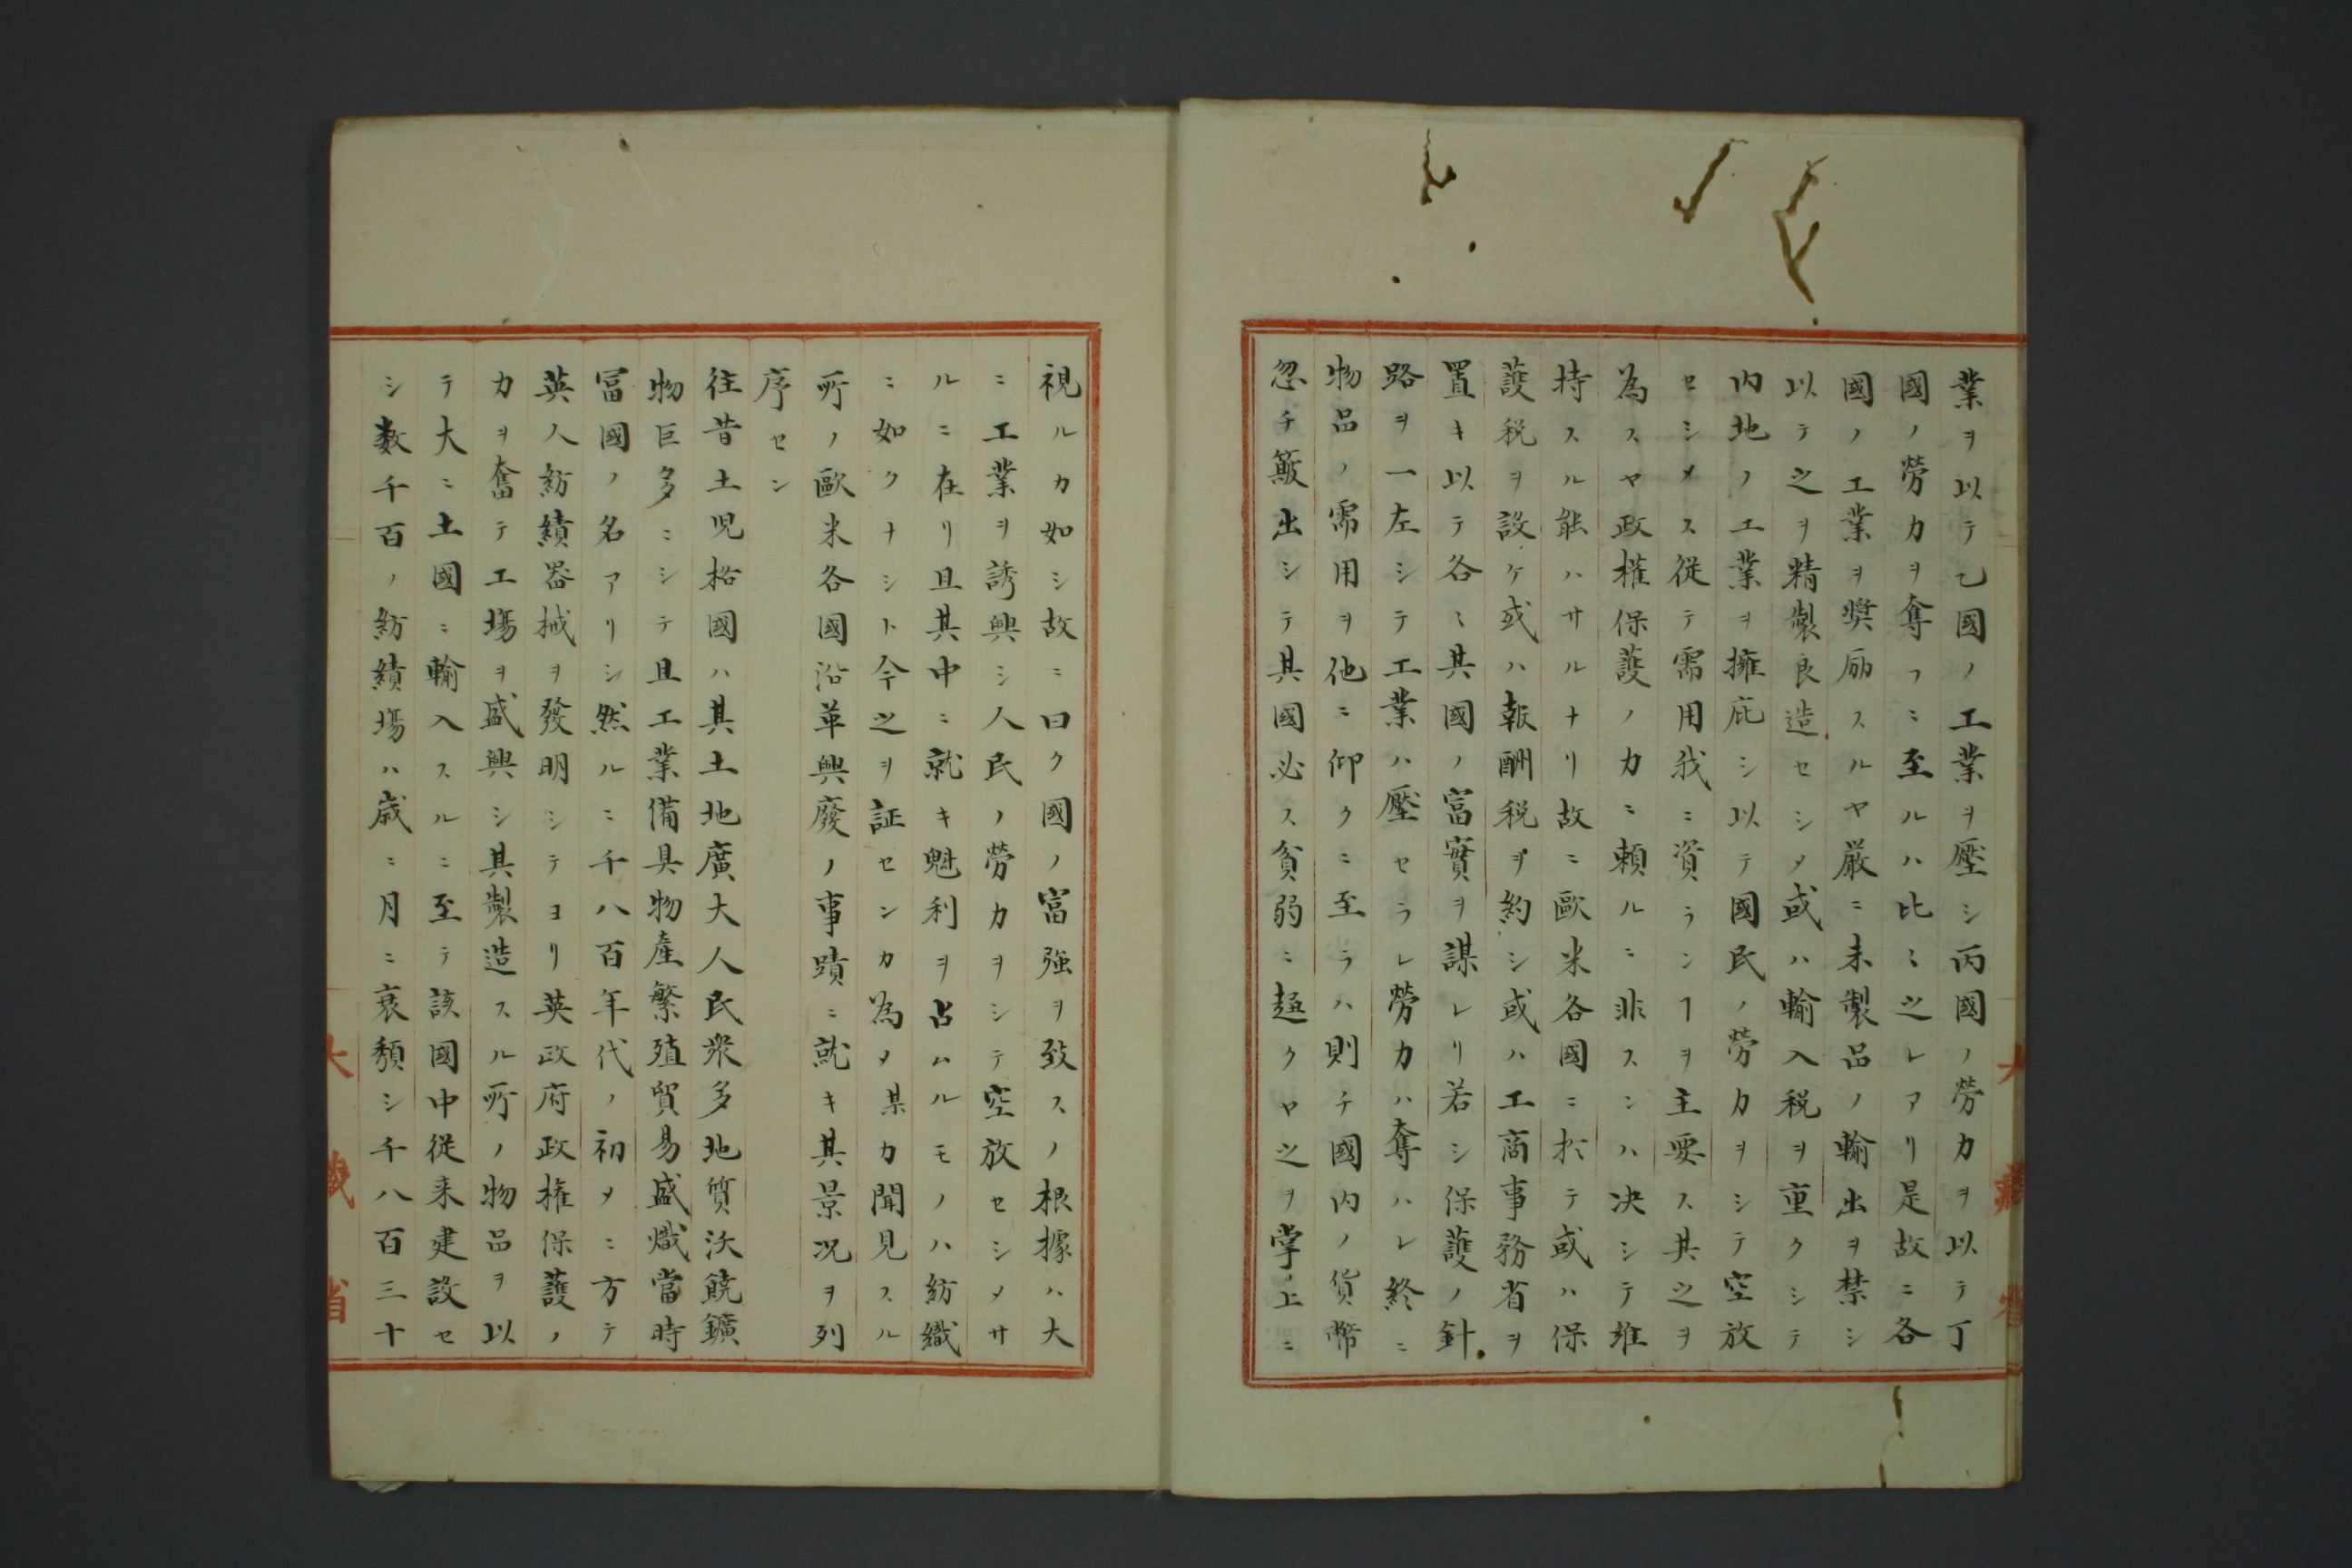 業ヲ以テ乙國ノ工業ヲ壓シ丙國ノ勞力ヲ以テ丁
國ノ勞力ヲ奪フニ至ルハ比〻之レアリ是故ニ各
國ノ工業ヲ奨励スルヤ厳ニ未製品ノ輸出ヲ禁シ
以テ之ヲ精製良造セシメ或ハ輸入税ヲ重クシテ
内地ノ工業ヲ擁庇シ以テ國民ノ勞力ヲシテ空放
セシメス従テ需用我ニ資ランヿヲ主要ス其之ヲ
為スヤ政権保護ノ力ニ頼ルニ非スンハ决シテ維
持スル能ハサルナリ故ニ歐米各國ニ於テ或ハ保
護税ヲ設ケ或ハ報酬税ヲ約シ或ハ工商事務省ヲ
置キ以テ各〻其國ノ富實ヲ謀レリ若シ保護ノ針
路ヲ一左シテ工業ハ壓セラレ勞力ハ奪ハレ終ニ
物品ノ需用ヲ他ニ仰クニ至ラハ則チ國内ノ貨幣
忽チ簸出シテ其國必ス貧弱ニ趣クヤ之ヲ掌上ニ
視ルカ如シ故ニ曰ク國ノ富強ヲ致スノ根據ハ大
ニ工業ヲ誘興シ人民ノ勞力ヲシテ空放セシメサ
ルニ在リ且其中ニ就キ魁利ヲ占ムルモノハ紡織
ニ如クナシト今之ヲ証センカ為メ某カ聞見スル
所ノ歐米各國沿革興廢ノ事蹟ニ就キ其景况ヲ列
序セン
往昔土児格國ハ其土地廣大人民衆多地質沃饒鑛
物巨多ニシテ且工業備具物産繁殖貿易盛熾當時
冨國ノ名アリシ然ルニ千八百年代ノ初メニ方テ
英人紡績器械ヲ發明シテヨリ英政府政権保護ノ
力ヲ奮テ工場ヲ盛興シ其製造スル所ノ物品ヲ以
テ大ニ土國ニ輸入スルニ至テ該國中従来建設セ
シ数千百ノ紡績場ハ歳ニ月ニ衰頽シ千八百三十
大藏省